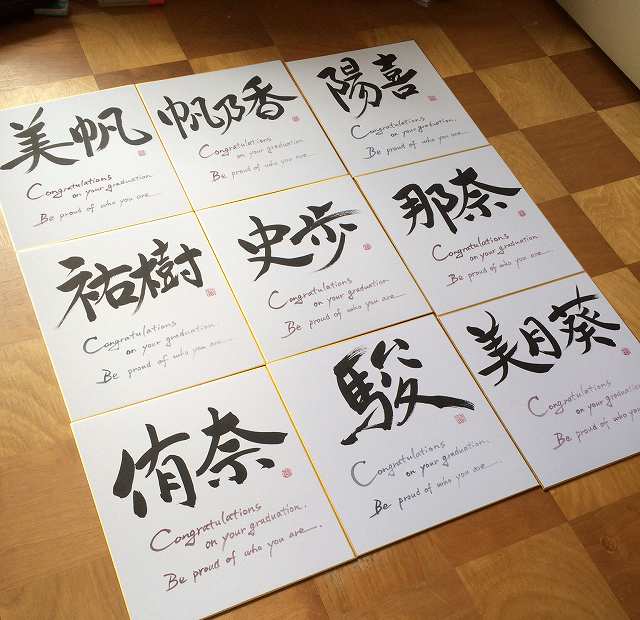 美帆
Congratulations
on your graduation.
Be proud of who you are
帆乃香
Congratulations
on your graduation.
Be proud of who you are
陽喜
Congratulations
on your graduation.
Be proud of who you are
祐樹
Congratulations
on your graduation.
Be proud of who you are
史歩
Congratulations
on your graduation.
Be proud of who you are
那奈
Congratulations
on your graduation.
Be proud of who you are
侑奈
Congratulations
on your graduation.
Be proud of who you are.
駿
Congratulations
on your graduation.
Be proud of who you are
美月葵
Congratulations
on your graduation
Be proud of who you